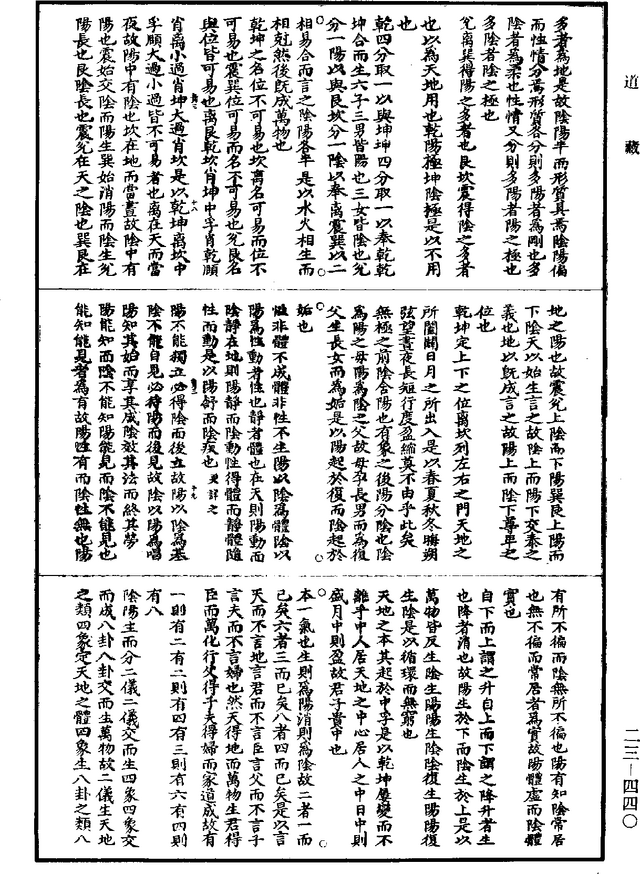 道藏
多者為地是故陰陽半而形質具焉陰陽偏
而性情分焉形質各分則多陽者為剛也多
陰者為柔也性情又分則多陽者陽之極也
多陰者陰之極也
兌離巽得陽之多者也艮坎震得陰之多者
也以為天地用也乾陽極坤陰極是以不用
也
乾四分取一以與坤坤四分取一以奉乾乾
坤合而生六子三男皆陽也三女皆陰也兌
分一陽以與艮坎分一陰以奉離震巽以二
相易合而言之陰陽各半是以水火相生而
相剋然後既成萬物也
乾坤之名位不可易也坎離名可易而位不
可易也震巽位可易而名不可易也兌艮名
與位皆可易也離肖乾坎肖坤中孚肖乾頤
肖離小過肖坤大過肖坎是以乾坤離坎中
孚頤大過小過皆不可易者也離在天而當
夜故陽中有陰也坎在地而當晝故陰中有
陽也震始交陰而陽生巽始消陽而陰生兌
陽長也艮陰長也震兌在天之陰也巽艮在
地之陽也故震兌上陰而下陽巽艮上陽而
下陰天以始生言之故陰上而陽下交泰之
義也地以既成言之故陽上而陰下尊卑之
位也
乾坤定上下之位離坎列左右之門天地之
所闔闢日月之所出入是以春夏秋冬晦朔
弦望晝夜長短行度盈縮莫不由乎此矣
無極之前陰含陽也有象之後陽分陰也陰
為陽之母陽為陰之父故母孕長男而為復
父生長女而為姤是以陽起於復而陰起於
姤也
性非體不成體非性不生陽以陰為體陰以
陽為性動者性也靜者體也在天則陽動而
陰靜在地則陽靜而陰動性得體而靜體隨
性而動是以陽舒而陰疾也更詳之
陽不能獨立必得陰而後立故陽以陰為基
陰不能自見必待陽而後見故陰以陽為唱
陽知其始而享其成陰效其法而終其勞
陽能知而陰不能知陽能見而陰不能見也
能知能見者為有故陽性有而陰性無也陽
有所不徧而陰無所不徧也陽有知陰常居
也無不徧而常居者為實故陽體虛而陰體
實也
自下而上謂之升自上而下謂之降升者生
也降者消也故陽生於下而陰生於上是以
萬物皆反生陰生陽陽生陰陰復生陽陽復
生陰是以循環而無窮也
天地之本其起於中乎是以乾坤屢變而不
離乎中人居天地之中心居人之中日中則
盛月中則盈故君子貴中也
本一氣也生則為陽消則為陰故二者一而
已矣六者三而已矣八者四而已矣是以言
天而不言地言君而不言臣言父而不言子
言夫而不言婦也然天得地而萬物生君得
臣而萬化行父得子夫得婦而家道成故有
一則有二有二則有四有三則有六有四則
有八
陰陽生而分二儀二儀交而生四象四象交
而成八卦八卦交而生萬物故二儀生天地
之類四象定天地之體四象生八卦之類八
二三—四四〇